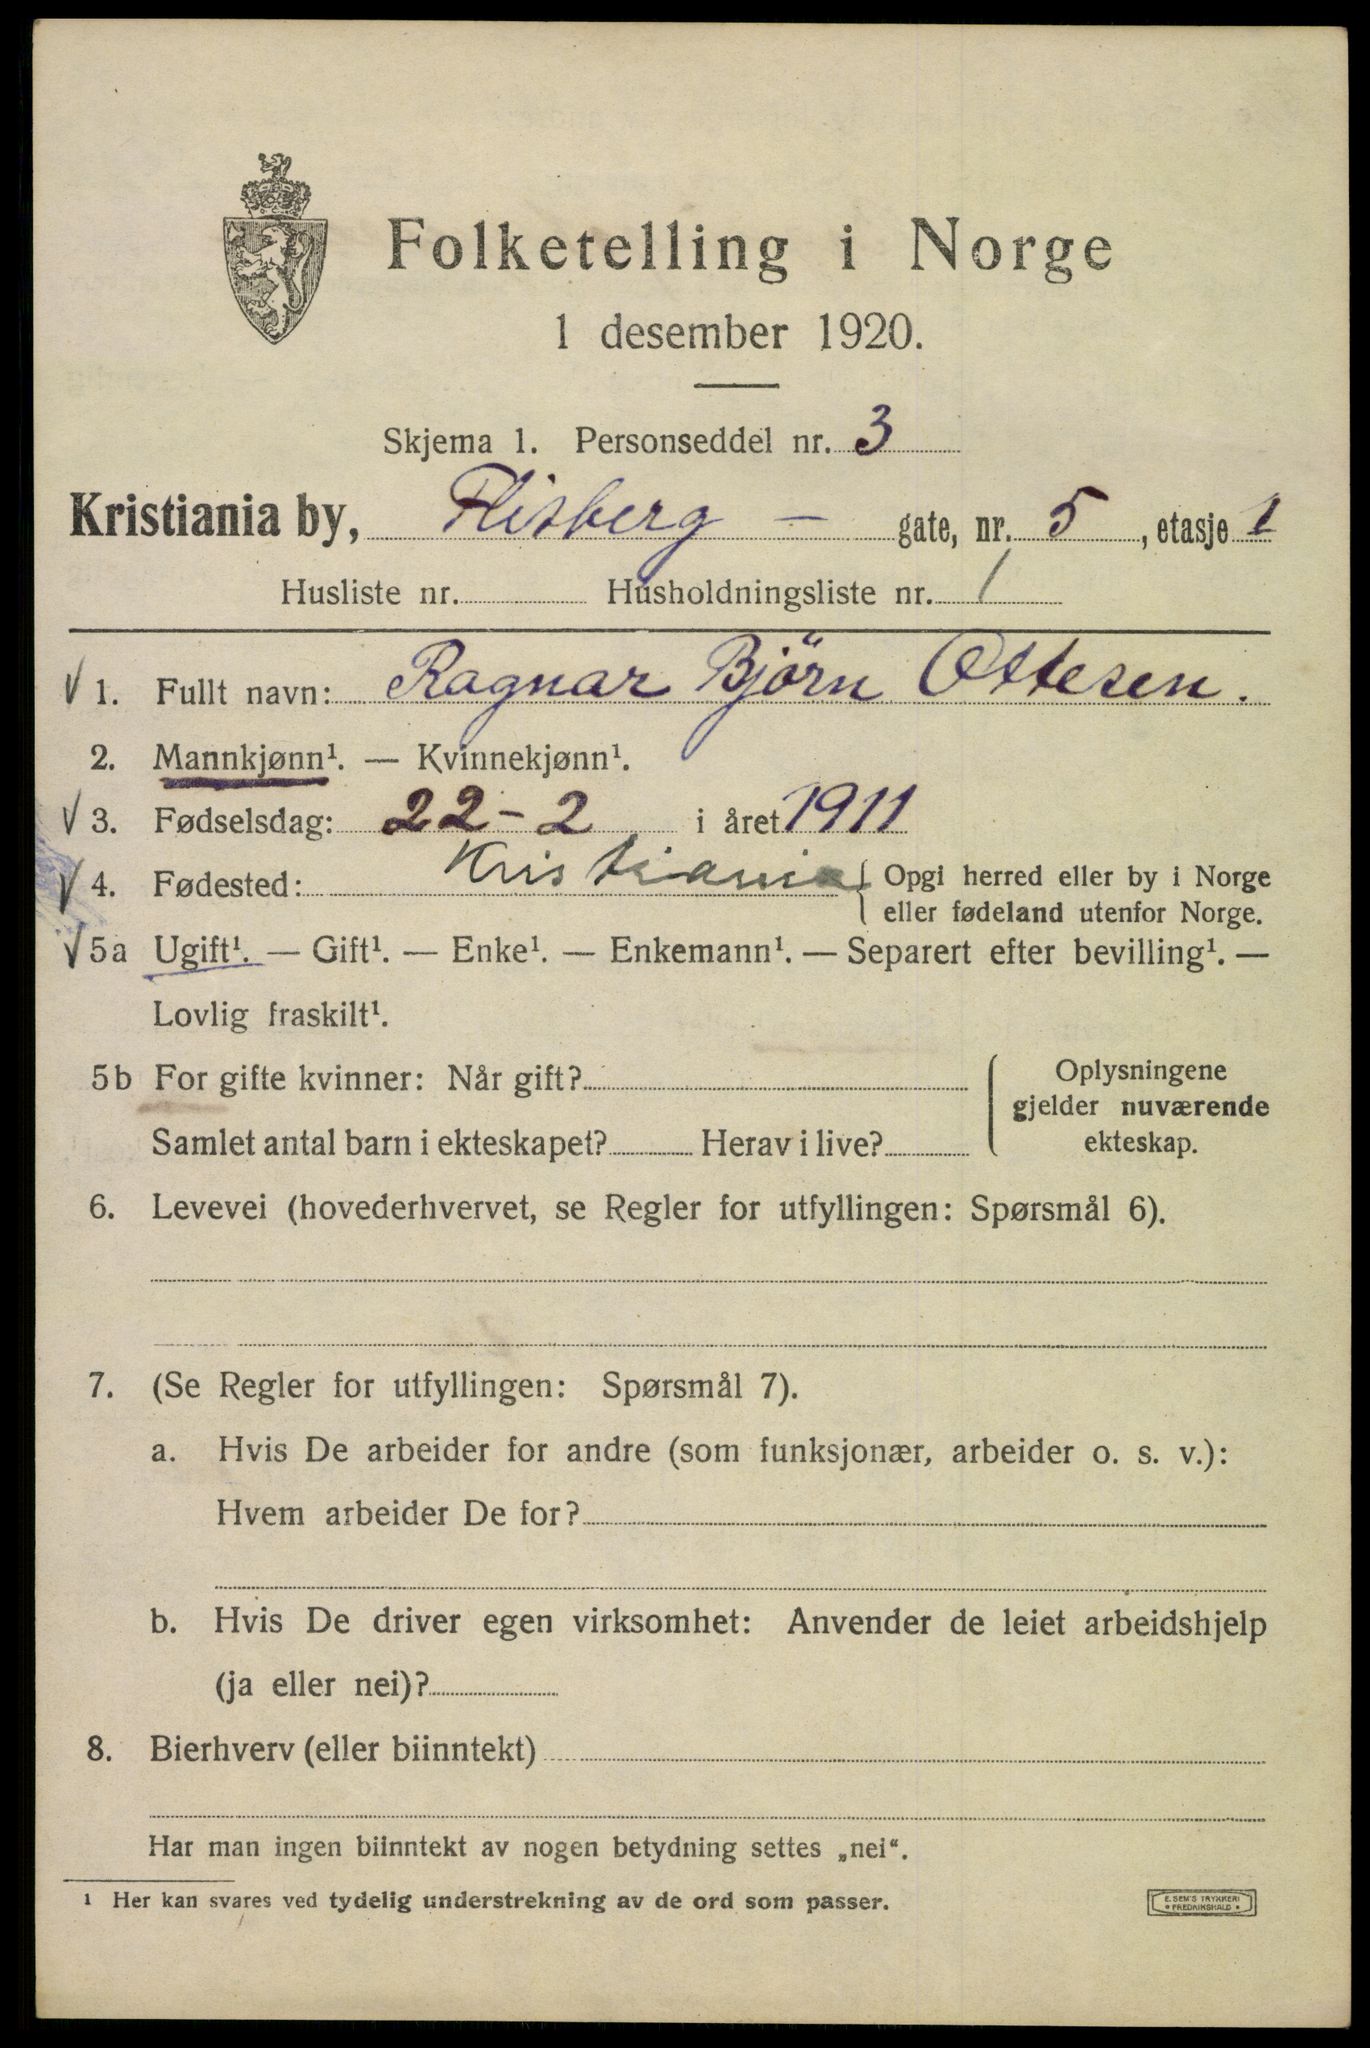 Folketelling i Norge
1 desember 1920.
Skjema 1. Personseddel nr. 3
Kristiania by, Flisberg - gate, nr. 5, etasje 1
Husliste nr. Husholdningsliste nr. 1
√ 1. Fullt navn: Ragnar Björn Ottesen.
2. Mannkjønn¹. — Kvinnekjønn¹.
√ 3. Fødselsdag: 22-2 i året 1911
√ 4. Fødested: Kristiania { Opgi herred eller by i Norge
eller fødeland utenfor Norge.
√ 5a Ugift¹. — Gift¹. — Enke¹. — Enkemann¹. — Separert efter bevilling¹. —
Lovlig fraskilt¹.
5b For gifte kvinner: Når gift?
Samlet antal barn i ekteskapet? Herav i live?
{ Oplysningene
gjelder nuværende
ekteskap.
6. Levevei (hovederhvervet, se Regler for utfyllingen: Spørsmål 6).
7. (Se Regler for utfyllingen: Spørsmål 7).
a. Hvis De arbeider for andre (som funksjonær, arbeider o. s. v.):
Hvem arbeider De for?
b. Hvis De driver egen virksomhet: Anvender de leiet arbeidshjelp
(ja eller nei)?
8. Bierhverv (eller biinntekt)
Har man ingen biinntekt av nogen betydning settes „nei“.
¹ Her kan svares ved tydelig understrekning av de ord som passer.
E. SEM'S TRYKKERI
• FREDRIKSHALD •